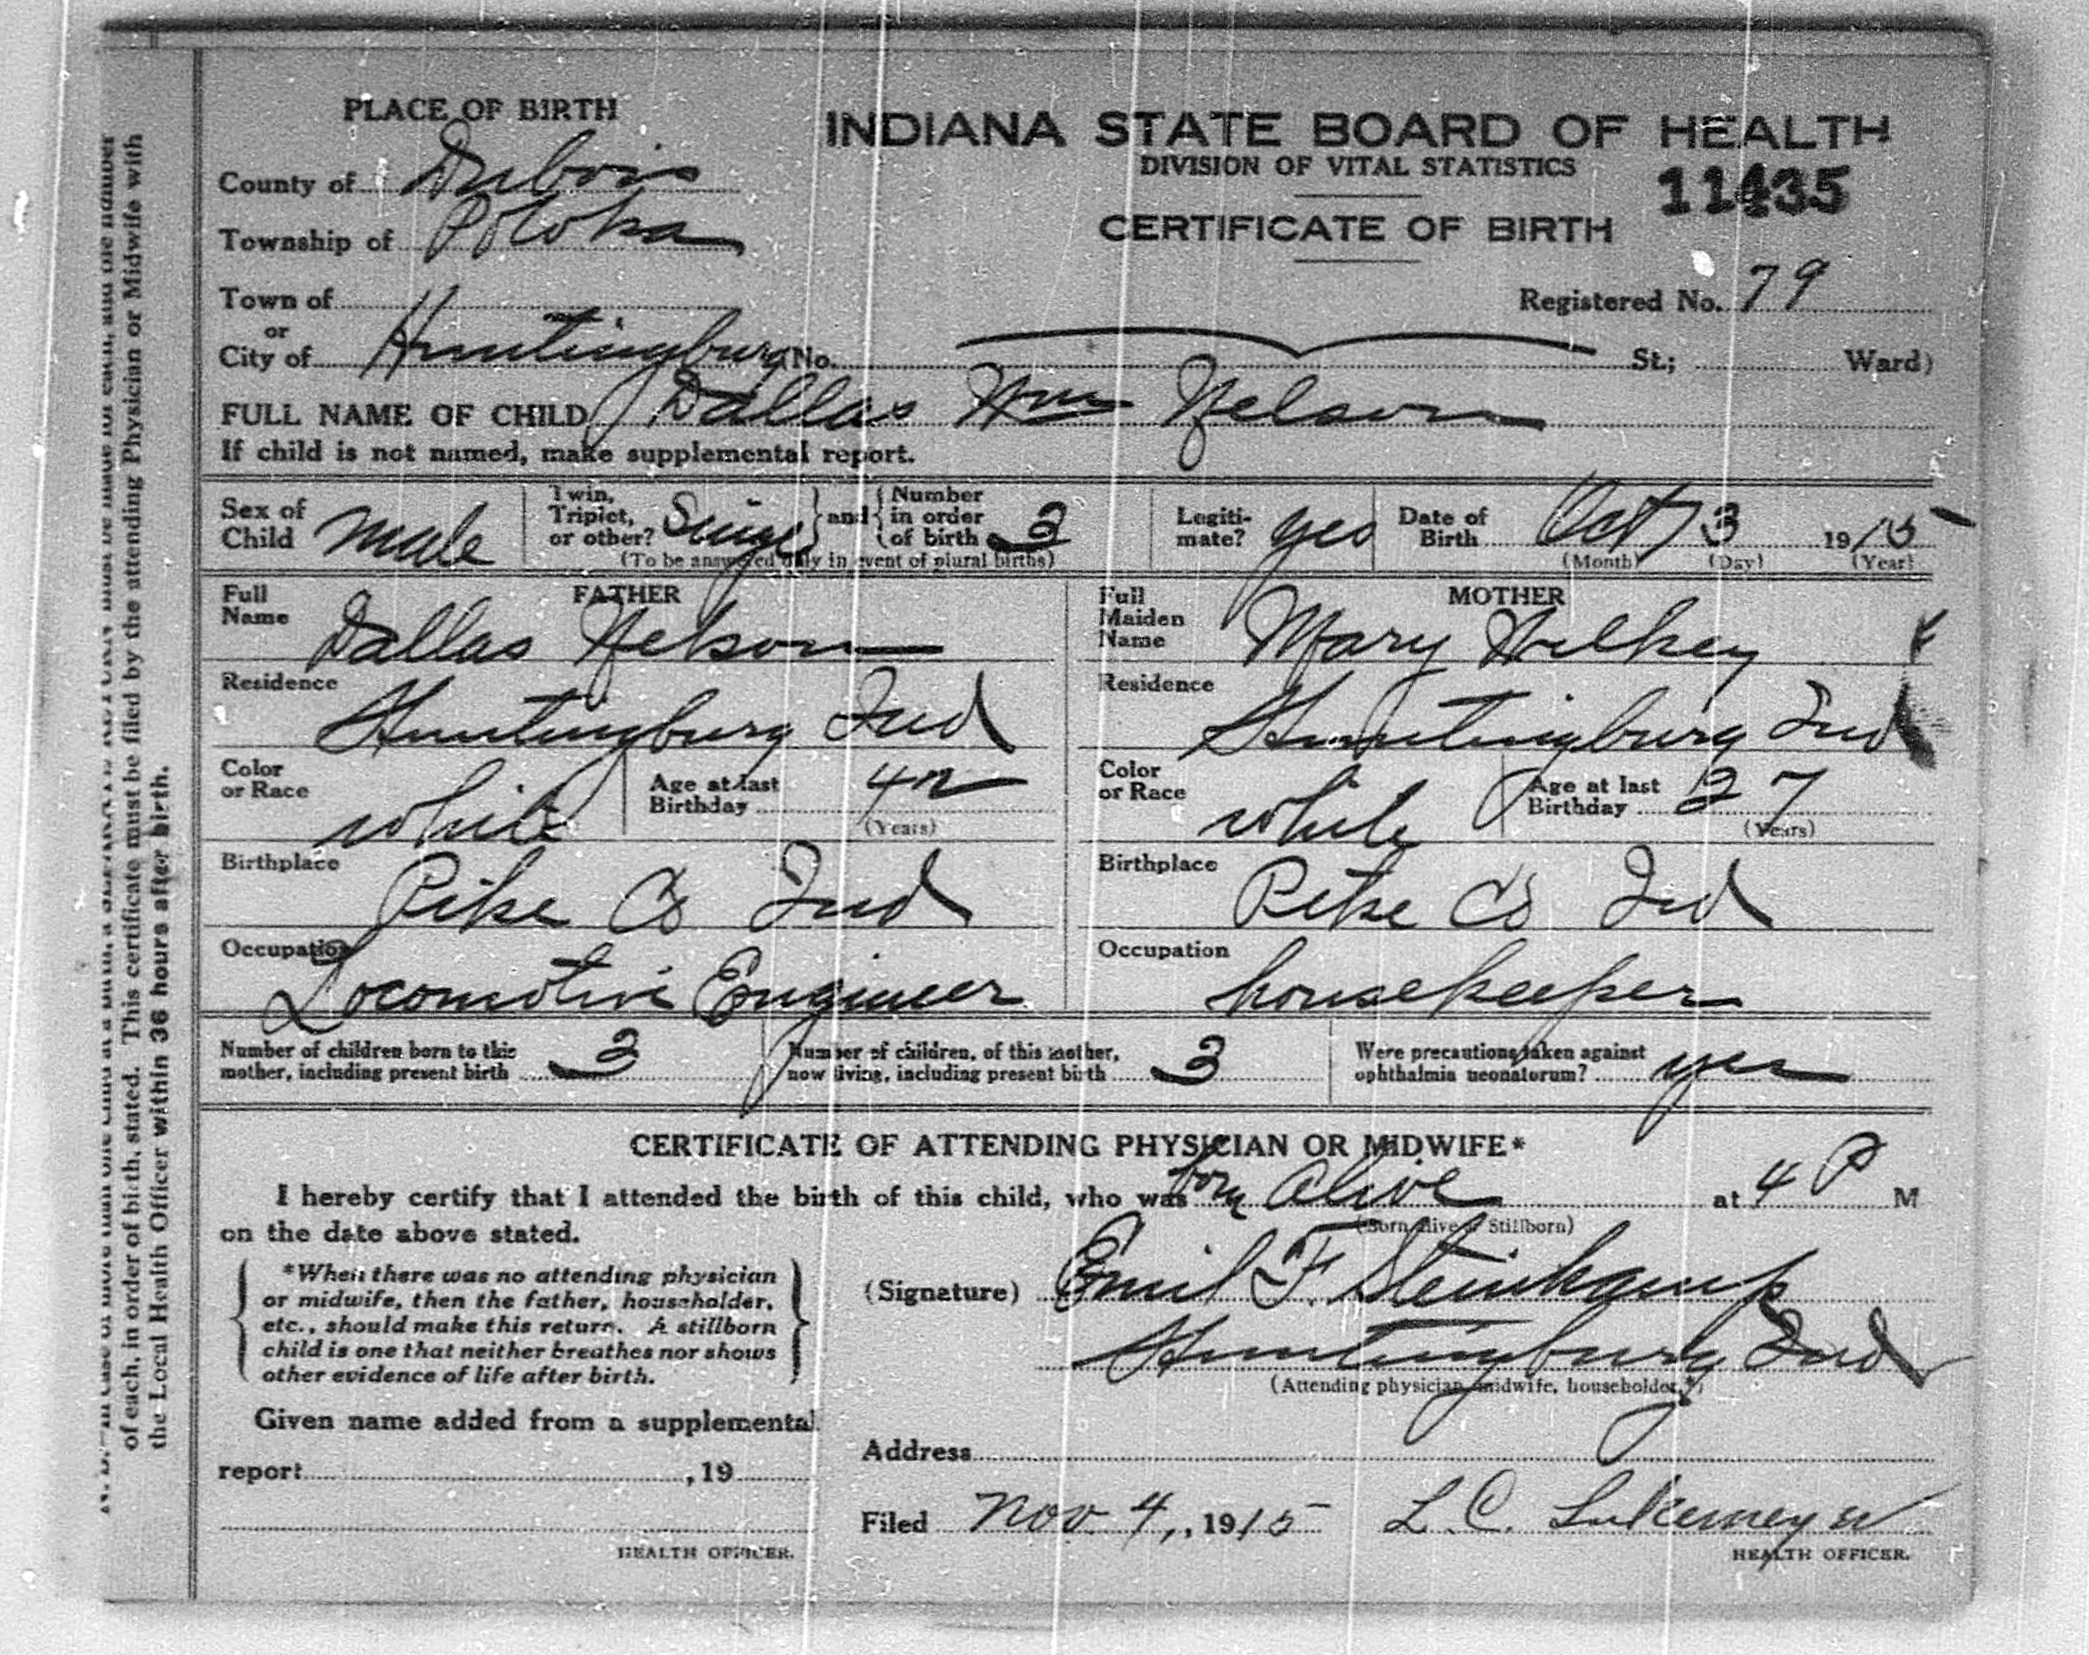 PLACE OF BIRTH
INDIANA STATE BOARD OF HEALTH
DIVISION OF VITAL STATISTICS
11435
CERTIFICATE OF BIRTH
County of Dubois
Township of Patoka
Registered No. 79
Town of
or
City of Huntingburg (No. St.; Ward)
FULL NAME OF CHILD Dallas Wm Nelson
If child is not named, make supplemental report.
Sex of Child male
Twin, Triplet, or other? Single and Number in order of birth 3
(To be answered only in event of plural births)
Legitimate? yes
Date of Birth Oct 3 1915
(Month) (Day) (Year)
FATHER
Full Name Dallas Nelson
Residence Huntingburg Ind
Color or Race white
Age at last Birthday 42
(Years)
Birthplace Pike Co Ind
Occupation Locomotive Engineer
MOTHER
Full Maiden Name Mary
Residence Huntingburg Ind
Color or Race white
Age at last Birthday 27
(Years)
Birthplace Pike Co Ind
Occupation housekeeper
Number of children born to this mother, including present birth 3
Number of children, of this mother, now living, including present birth 3
Were precautions taken against ophthalmia neonatorum? yes
CERTIFICATE OF ATTENDING PHYSICIAN OR MIDWIFE*
I hereby certify that I attended the birth of this child, who was born alive at 4 P M
(Born alive or Stillborn)
on the date above stated.
*When there was no attending physician
or midwife, then the father, householder,
etc., should make this return. A stillborn
child is one that neither breathes nor shows
other evidence of life after birth.
(Signature) Emil F. Steinkamp
Huntingburg Ind
(Attending physician, midwife, householder.*)
Given name added from a supplemental
report , 19
HEALTH OFFICER.
Address
Filed Nov. 4, 1915 L. C. Lukemeyer
HEALTH OFFICER.
of each, in order of birth, stated. This certificate must be filed by the attending Physician or Midwife with
the Local Health Officer within 36 hours after birth.